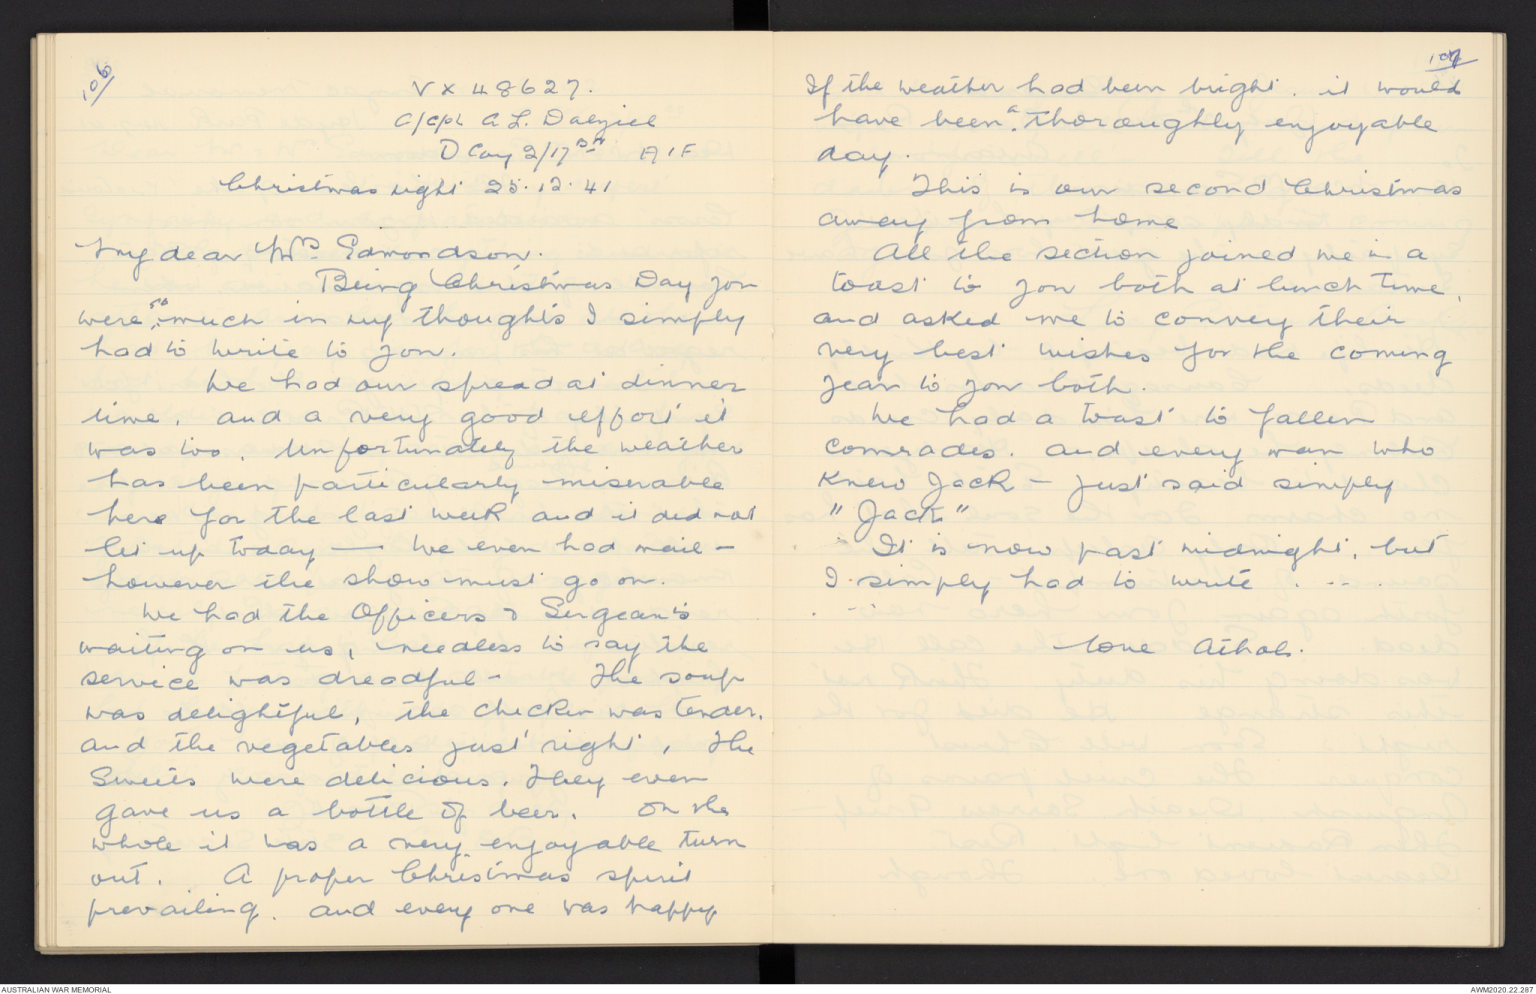 106
V X 48627.
A/Cpl A L. Dalziel
D Coy 2/17th Bn A I F
Christmas night 25.12.41
My dear Mrs Edmondson.
Being Christmas Day you
were so much in my thoughts I simply
had to write to you.
We had our spread at dinner
time. and a very good effort it
was too. Unfortunately the weather
has been particularly miserable
here for the last week and it did not
let up today — We even had mail -
however the show must go on.
We had the Officers & Sergeants
waiting on us, needless to say the
service was dreadful - The soup
was delightful, the chicken was tender.
and the vegetables just right, The
Sweets were delicious. They even
gave us a bottle of beer. On the
whole it was a very enjoyable turn
out. A proper Christmas spirit
prevailing. and every one was happy
107
If the weather had been bright. it would
have been a thoroughly enjoyable
day.
This is our second Christmas
away from home
All the section joined me in a
toast to you both at lunch time,
and asked me to convey their
very best wishes for the coming
year to you both.
We had a toast to fallen
comrades. and every man who
knew Jack - just said simply
"Jack"
It is now past midnight, but
I simply had to write . - - .
Love Athol.
AUSTRALIAN WAR MEMORIAL
AWM2020.22.287